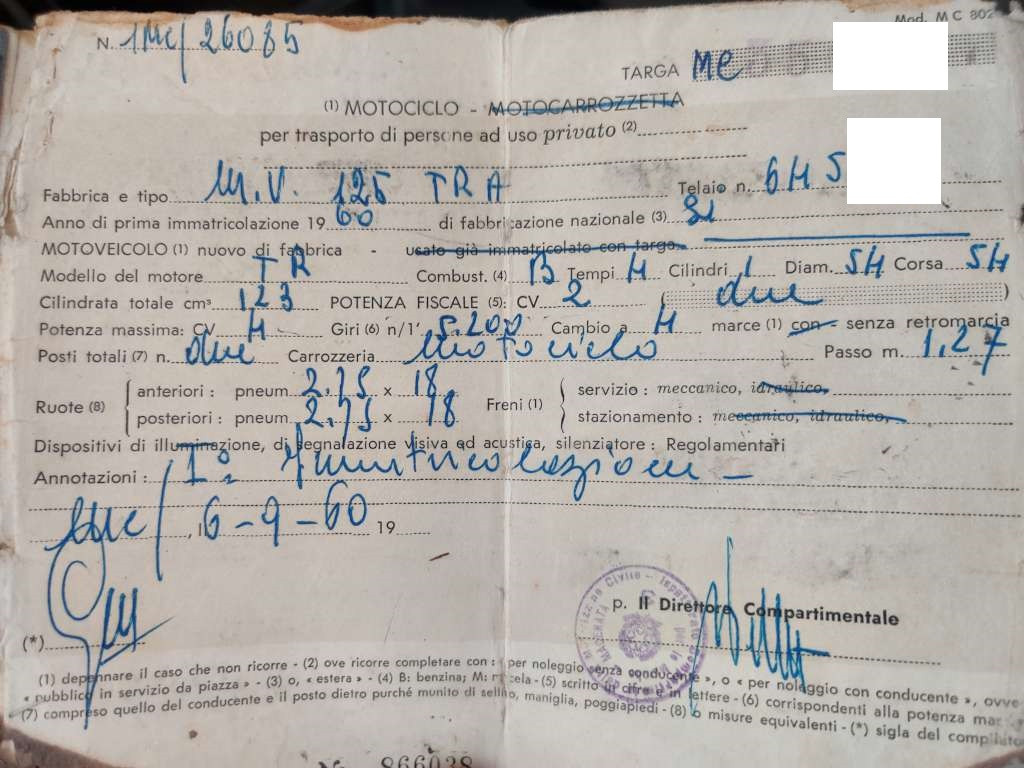 Mod. M C 802
N. 1MC/26085
TARGA ME
(1) MOTOCICLO - MOTOCARROZZETTA
per trasporto di persone ad uso privato (2)
Fabbrica e tipo M.V. 125 TRA Telaio n. 6H5
Anno di prima immatricolazione 19 60 di fabbricazione nazionale (3) SI
MOTOVEICOLO (1) nuovo di fabbrica - usato già immatricolato con targa
Modello del motore TR Combust. (4) B Tempi 4 Cilindri 1 Diam. 54 Corsa 54
Cilindrata totale cm³ 123 POTENZA FISCALE (5): CV 2 ( due )
Potenza massima: CV 4 Giri (6) n/1' 5.200 Cambio a 4 marce (1) con - senza retromarcia
Posti totali (7) n. due Carrozzeria Motociclo Passo m. 1,27
Ruote (8) anteriori : pneum 2.75 x 18 Freni (1) servizio : meccanico, idraulico,
posteriori : pneum 2.75 x 18 stazionamento : meccanico, idraulico,
Dispositivi di illuminazione, di segnalazione visiva ed acustica, silenziatore : Regolamentari
Annotazioni : 1° Immatricolazione -
, 16-9-60 19
p. Il Direttore Compartimentale
(*)
(1) depennare il caso che non ricorre - (2) ove ricorre completare con : « per noleggio senza conducente », o « per noleggio con conducente », ovve
« pubblico in servizio da piazza » - (3) o, « estera » - (4) B: benzina; M: miscela - (5) scritto in cifre e in lettere - (6) corrispondenti alla potenza
(7) compreso quello del conducente e il posto dietro purché munito di sellino, maniglia, poggiapiedi - (8) o misure equivalenti - (*) sigla del compilato
No 866038